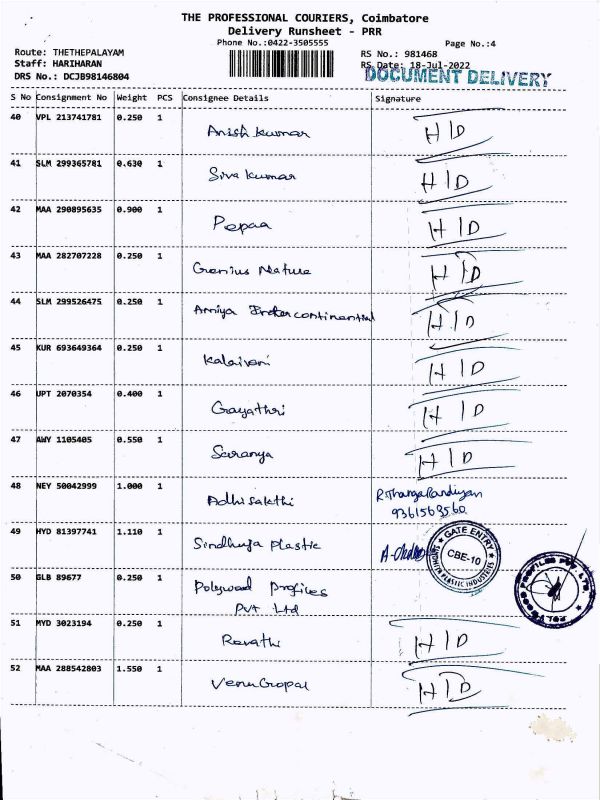 THE PROFESSIONAL COURIERS, Coimbatore
Delivery Runsheet - PRR
Phone No.:0422-3505555
Page No.:4
Route: THETHEPALAYAM
RS No.: 981468
Staff: HARIHARAN
RS Date: 18-Jul-2022
DRS No.: DCJB98146804
DOCUMENT DELIVERY
S No Consignment No Weight PCS Consignee Details Signature
40 VPL 213741781 0.250 1 Anish kumar H/D
41 SLM 299365781 0.630 1 Siva kumar H/D
42 MAA 290895635 0.900 1 Pepaa H/D
43 MAA 282707228 0.250 1 Genius Nature H/D
44 SLM 299526475 0.250 1 Amiya Intercontinential H/D
45 KUR 693649364 0.250 1 Kalaivani H/D
46 UPT 2070354 0.400 1 Gayathri H/D
47 AWY 1105405 0.550 1 Saranya H/D
48 NEY 50042999 1.000 1 Adhisakthi R.ThangaPandiyan
9361569560
49 HYD 81397741 1.110 1 Sindhuja plastic
GATE ENTRY
CBE-10
PLASTIC INDUSTRIES
50 GLB 89677 0.250 1 Polywood Profiles
Pvt Ltd
POLYWOOD PROFILES PVT. LTD.
51 MYD 3023194 0.250 1 Revathi H/D
52 MAA 288542803 1.550 1 VenuGopal H/D